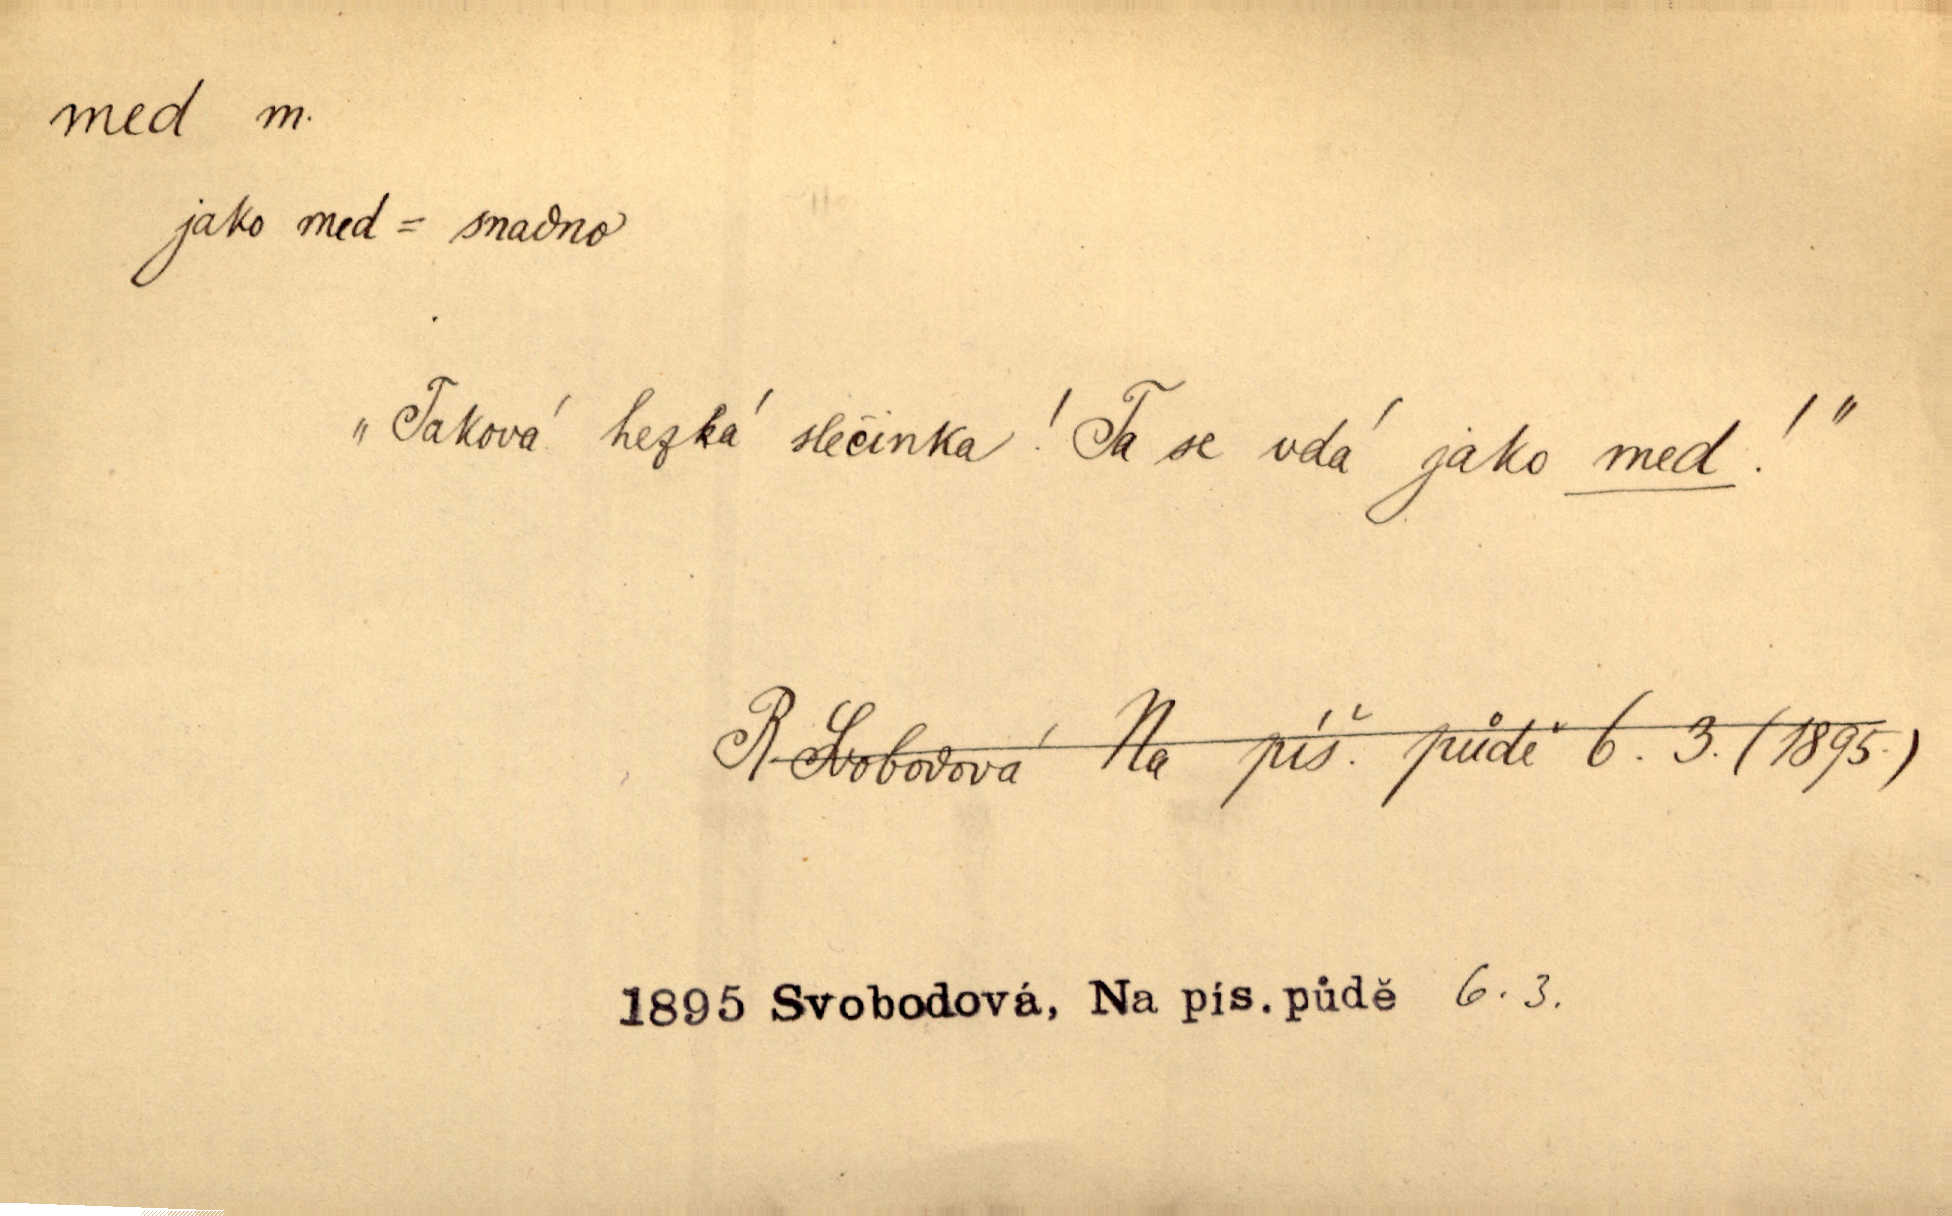 med m.
jako med = snadno
„Taková hezká slečinka! Ta se vdá jako med!"
R. Svobodová Na píš. půdě 6. 3. (1895.)
1895 Svobodová, Na pís. půdě 6. 3.